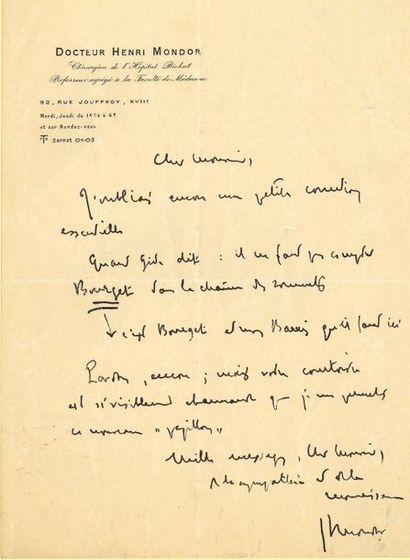 DOCTEUR HENRI MONDOR
Chirurgien de l'Hôpital Bichat
Professeur agrégé à la Faculté de Médecine
92, RUE JOUFFROY, XVIIe
Mardi, Jeudi de 1h½ à 4h
et sur Rendez-vous
T Carnot 01-03
Cher Monsieur,
J'oubliais encore une petite correction
essentielle
Quand Gide dit : il ne faut pas compter
Bourget dans la chaîne des sommets
c'est Bourget et non Barrès qu'il faut ici
Pardon, encore ; mais votre courtoisie
est si visiblement charmante que je me permets
ce nouveau "papillon"
Mille messages, Cher Monsieur,
de la sympathie et de la
reconnaissance
Mondor